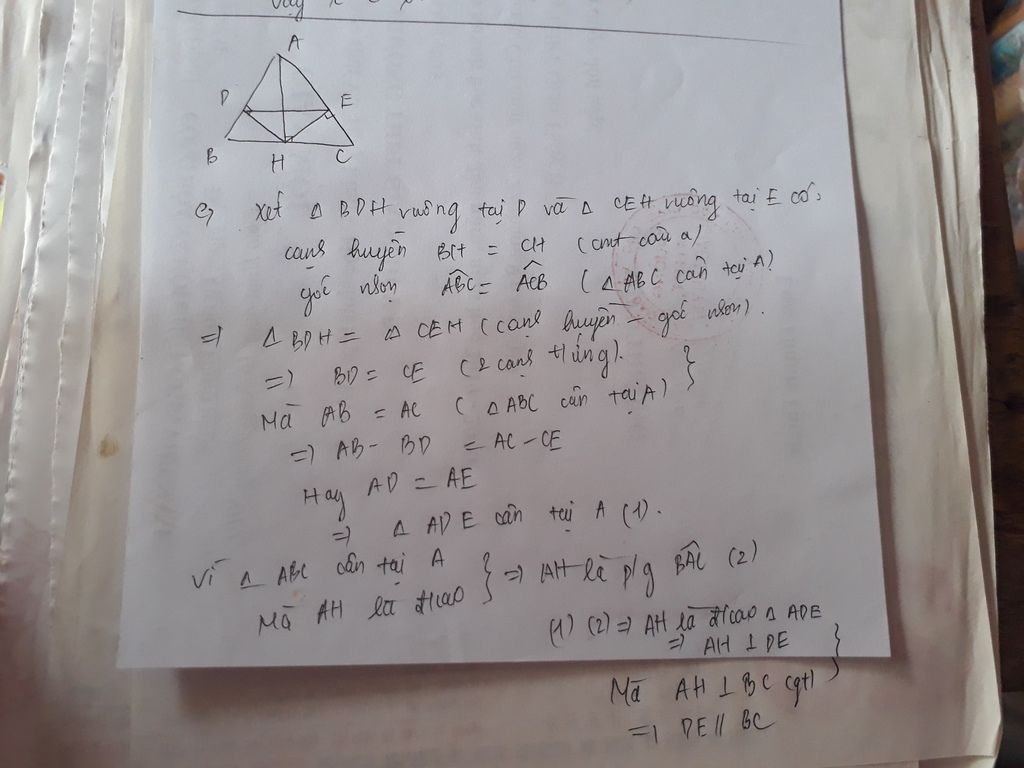 Vậy
A
D
E
B
H
C
c, Xét Δ BDH vuông tại D và Δ CEH vuông tại E có:
cạnh huyền BH = CH (cmt câu a)
góc nhọn ABC = ACB (Δ ABC cân tại A)
=> Δ BDH = Δ CEH (cạnh huyền - góc nhọn).
=> BD = CE (2 cạnh t/ứng). }
Mà AB = AC (Δ ABC cân tại A)
=> AB - BD = AC - CE
Hay AD = AE
=> Δ ADE cân tại A (1).
Vì Δ ABC cân tại A } => AH là p/g BAC (2)
Mà AH là đ/cao
(1) (2) => AH là đ/cao Δ ADE
=> AH ⊥ DE }
Mà AH ⊥ BC (gt)
=> DE // BC